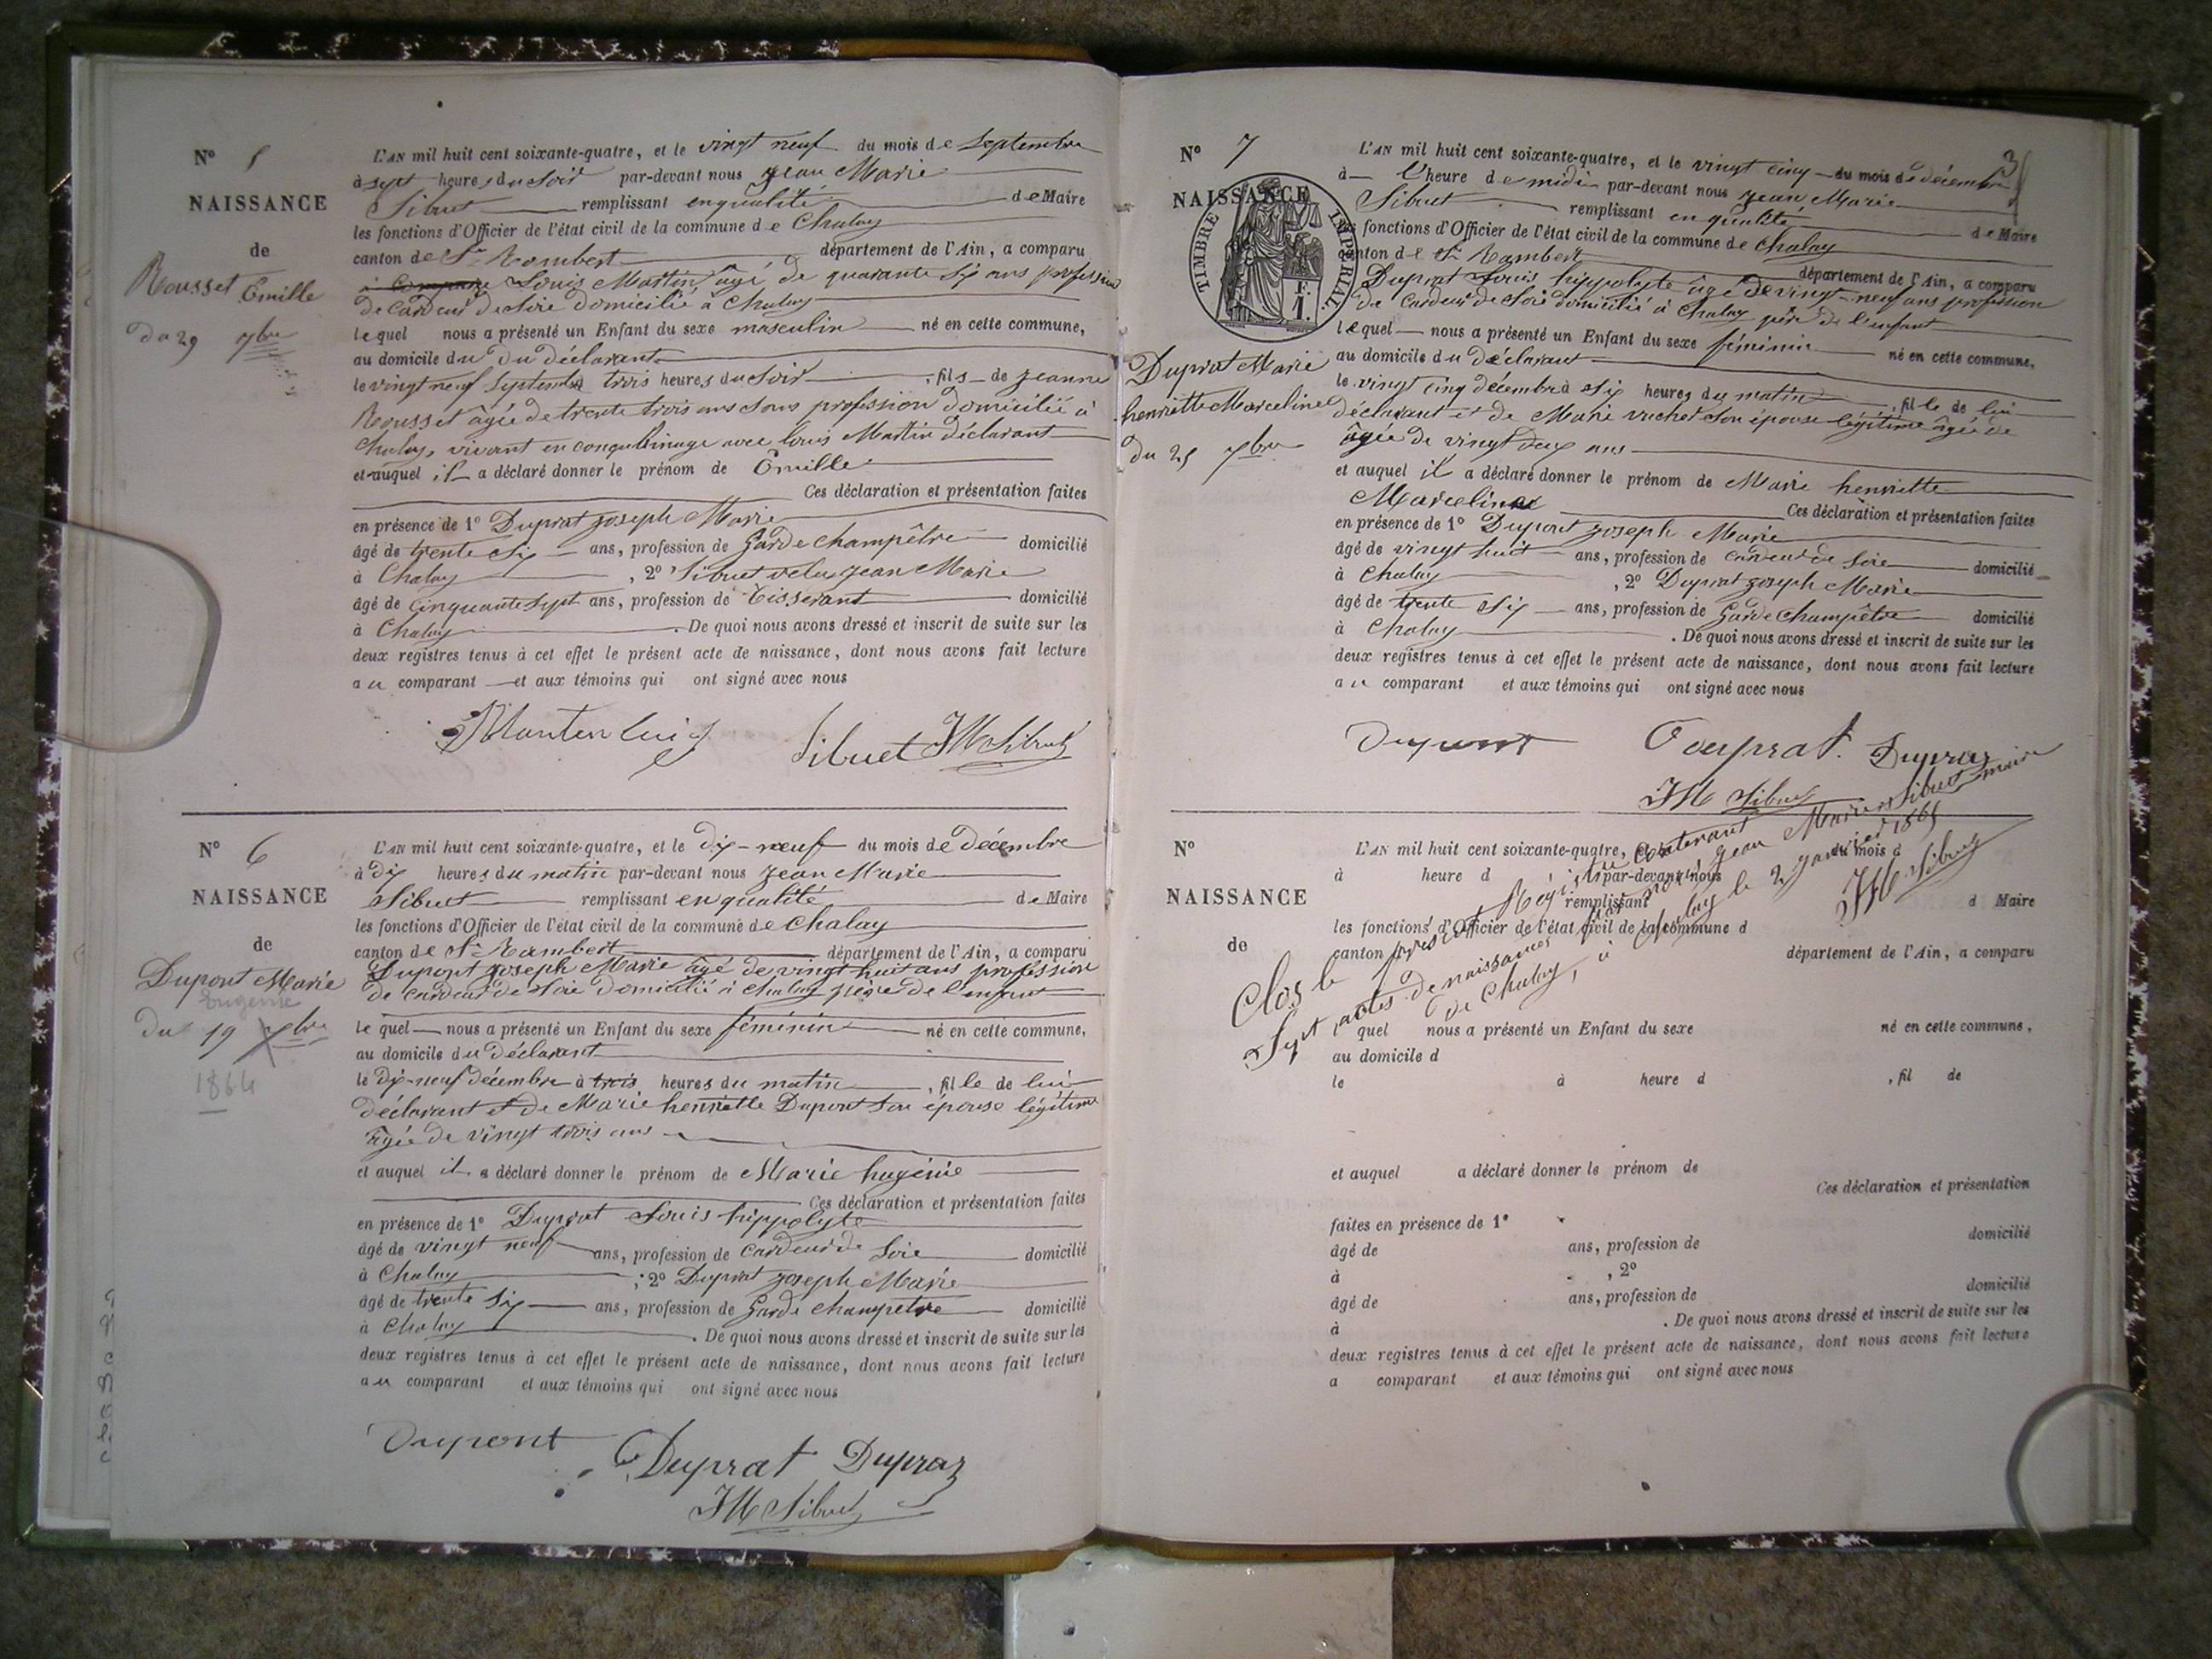 N° 5
NAISSANCE
de
Rousset Émille
du 29 7bre
L'AN mil huit cent soixante-quatre, et le vingt neuf du mois de Septembre
à sept heures du soir par-devant nous Jean Marie
Sibuet remplissant en qualité de Maire
les fonctions d'Officier de l'état civil de la commune de Chaley
canton de St Rambert département de l'Ain, a comparu
Louis Martin, âgé de quarante six ans profession
de Cardeur de Soie domicilié à Chaley
lequel nous a présenté un Enfant du sexe masculin né en cette commune,
au domicile du du déclarant
le vingt neuf Septembre trois heures du soir , fils de Jeanne
Rousset âgée de trente trois ans sans profession domicilié à
Chaley, vivant en concubinage avec Louis Martin déclarant
et auquel il a déclaré donner le prénom de Émille
Ces déclaration et présentation faites
en présence de 1° Duprat Joseph Marie
âgé de trente six ans, profession de Garde champêtre domicilié
à Chaley , 2° Sibuet Jean Marie
âgé de cinquante sept ans, profession de Tisserant domicilié
à Chaley . De quoi nous avons dressé et inscrit de suite sur les
deux registres tenus à cet effet le présent acte de naissance, dont nous avons fait lecture
au comparant et aux témoins qui ont signé avec nous
Sibuet JM Sibuet
N° 6
NAISSANCE
de
Dupont Marie
Eugénie
du 19 Xbre
1864
L'AN mil huit cent soixante-quatre, et le dix-neuf du mois de Décembre
à dix heures du matin par-devant nous Jean Marie
Sibuet remplissant en qualité de Maire
les fonctions d'Officier de l'état civil de la commune de Chaley
canton de St Rambert département de l'Ain, a comparu
Dupont Joseph Marie âgé de vingt huit ans profession
de Cardeur de Soie domicilié à Chaley père de l'enfant
le quel nous a présenté un Enfant du sexe féminin né en cette commune,
au domicile du Déclarant
le dix-neuf décembre à trois heures du matin , fille de lui
déclarant et de Marie henriette Dupont son épouse légitime
âgée de vingt trois ans
et auquel il a déclaré donner le prénom de Marie hugénie
Ces déclaration et présentation faites
en présence de 1° Duprat Louis hippolyte
âgé de vingt neuf ans, profession de Cardeur de Soie domicilié
à Chaley ; 2° Duprat Joseph Marie
âgé de trente six ans, profession de Garde champetre domicilié
à Chaley . De quoi nous avons dressé et inscrit de suite sur les
deux registres tenus à cet effet le présent acte de naissance, dont nous avons fait lecture
au comparant et aux témoins qui ont signé avec nous
Dupont Duprat Dupraz
JM Sibuet
3
N° 7
NAISSANCE
TIMBRE IMPÉRIAL
1 F.
Duprat Marie
henriette Marceline
du 25 Xbre
L'AN mil huit cent soixante-quatre, et le vingt cinq du mois de décembre
à l'heure de midi par-devant nous Jean Marie
Sibuet remplissant en qualité de Maire
fonctions d'Officier de l'état civil de la commune de Chaley
canton de St Rambert département de l'Ain, a comparu
Duprat Louis hippolyte âgé de vingt-neuf ans profession
de Cardeur de Soie domicilié à Chaley père de l'enfant
lequel nous a présenté un Enfant du sexe féminin né en cette commune,
au domicile du déclarant
le vingt cinq décembre à six heures du matin , fille de lui
déclarant et de Marie vuchet son épouse légitime âgée de
âgée de vingt deux ans
et auquel il a déclaré donner le prénom de Marie henriette
Marceline
Ces déclaration et présentation faites
en présence de 1° Dupont Joseph Marie
âgé de vingt huit ans, profession de cardeur de Soie domicilié
à Chaley , 2° Duprat Joseph Marie
âgé de trente six ans, profession de Garde champêtre domicilié
à Chaley . De quoi nous avons dressé et inscrit de suite sur les
deux registres tenus à cet effet le présent acte de naissance, dont nous avons fait lecture
au comparant et aux témoins qui ont signé avec nous
Dupont Duprat Dupraz
JM Sibuet
N°
NAISSANCE
de
L'AN mil huit cent soixante-quatre, et le du mois d
à heure d par-devant nous
remplissant d Maire
les fonctions d'Officier de l'état civil de la commune d
canton département de l'Ain, a comparu
quel nous a présenté un Enfant du sexe né en cette commune,
au domicile d
le à heure d , fil de
et auquel a déclaré donner le prénom de
Ces déclaration et présentation
faites en présence de 1°
âgé de ans, profession de domicilié
à , 2°
âgé de ans, profession de domicilié
à . De quoi nous avons dressé et inscrit de suite sur les
deux registres tenus à cet effet le présent acte de naissance, dont nous avons fait lecture
a comparant et aux témoins qui ont signé avec nous
Clos le présent Régistre contenant
Sept actes de naissances par nous Jean Marie Sibuet maire
de Chaley, à Chaley le 2 Janvier 1865
JM Sibuet